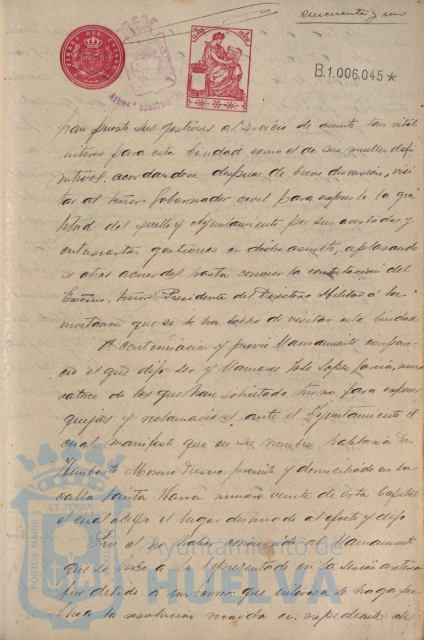 cincuenta y uno
TIMBRE DEL ESTADO
B.1.006.045*
han puesto sus gestiones al servicio de asunto tan vital
interes para esta ciudad como el de sus muelles defi
nitivos, acordandose despues de breve discusion, visi
tar al Señor Gobernador civil para expresarle la gra
titud del pueblo y Ayuntamiento por sus acertadas y
entusiastas gestiones en dicho asunto, aplazando
se otros acuerdos hasta conocer la contestacion del
Excmo. Señor Presidente del Directorio Militar á la
invitacion que se le ha hecho de visitar esta ciudad
A continuacion y previo llamamiento compare
ció el que dijo ser y llamarse José Lopez Garcia, nume
ro trece de los que han solicitado turno para exponer
quejas y reclamaciones ante el Ayuntamiento el
cual manifestó que en su nombre hablaria Don
Humberto Moreno presente y domiciliado en la
calle Santa numero veinte de esta Capital
el cual ocupó el lugar destinado al efecto y dijo
Que el no haber concurrido al llamamiento
que se hizo a su representado en la sesion anterior
fué debido á un error que interesa se haga
la resolucion recaida en expediente de
PORTUS MARIS ET TERRÆ
Ayuntamiento de
HUELVA